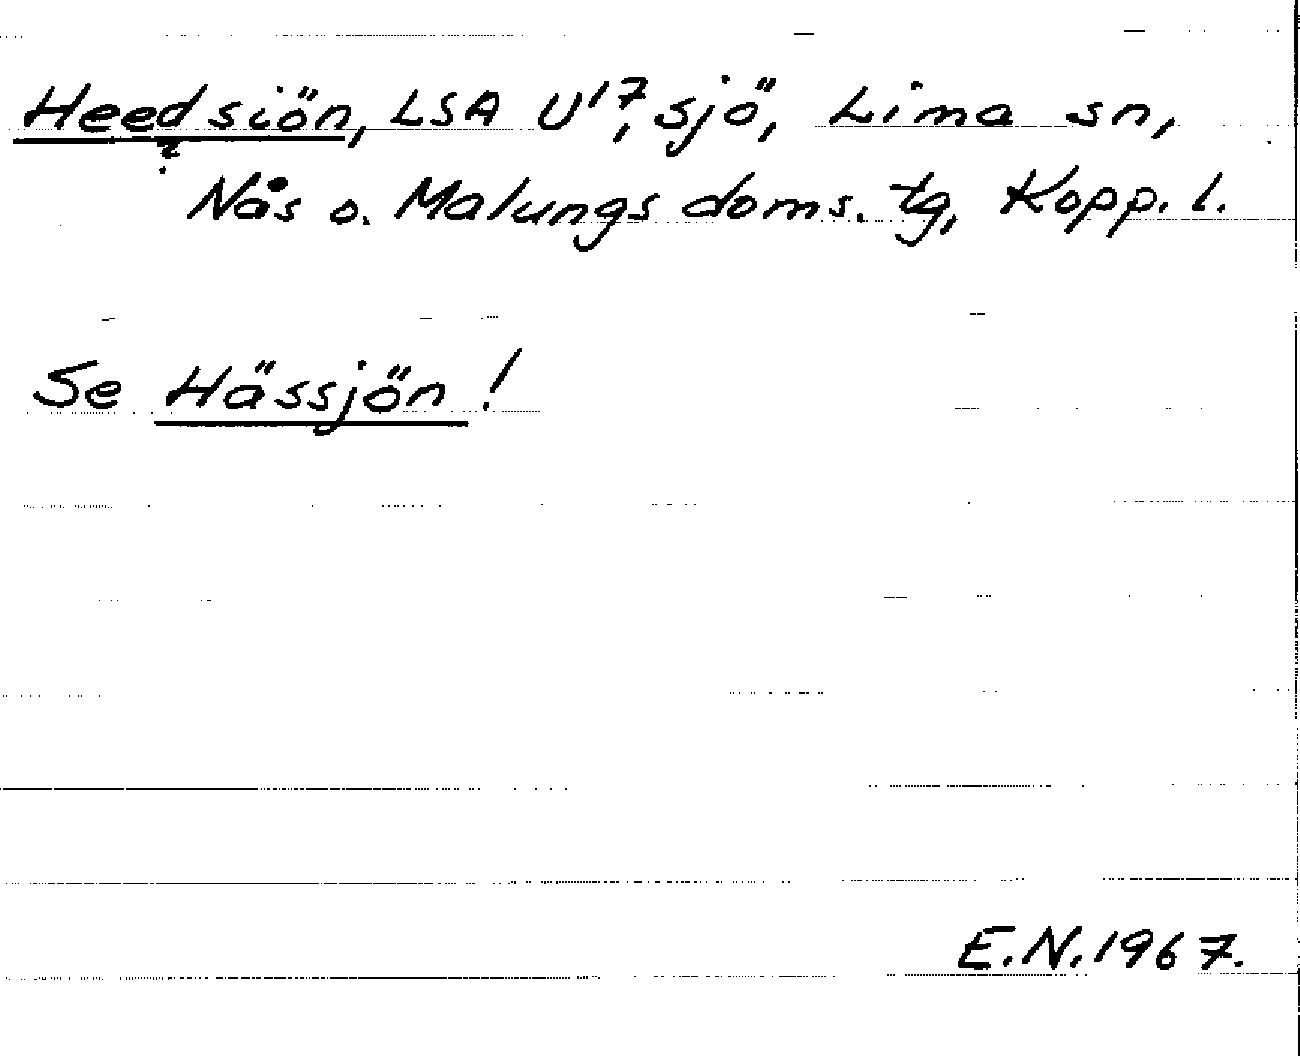 Heedsiön, LSA U'7, sjö, Lima sn,
?
Nås o. Malungs doms. tg, Kopp. l.
Se Hässjön!
E.N. 1967.